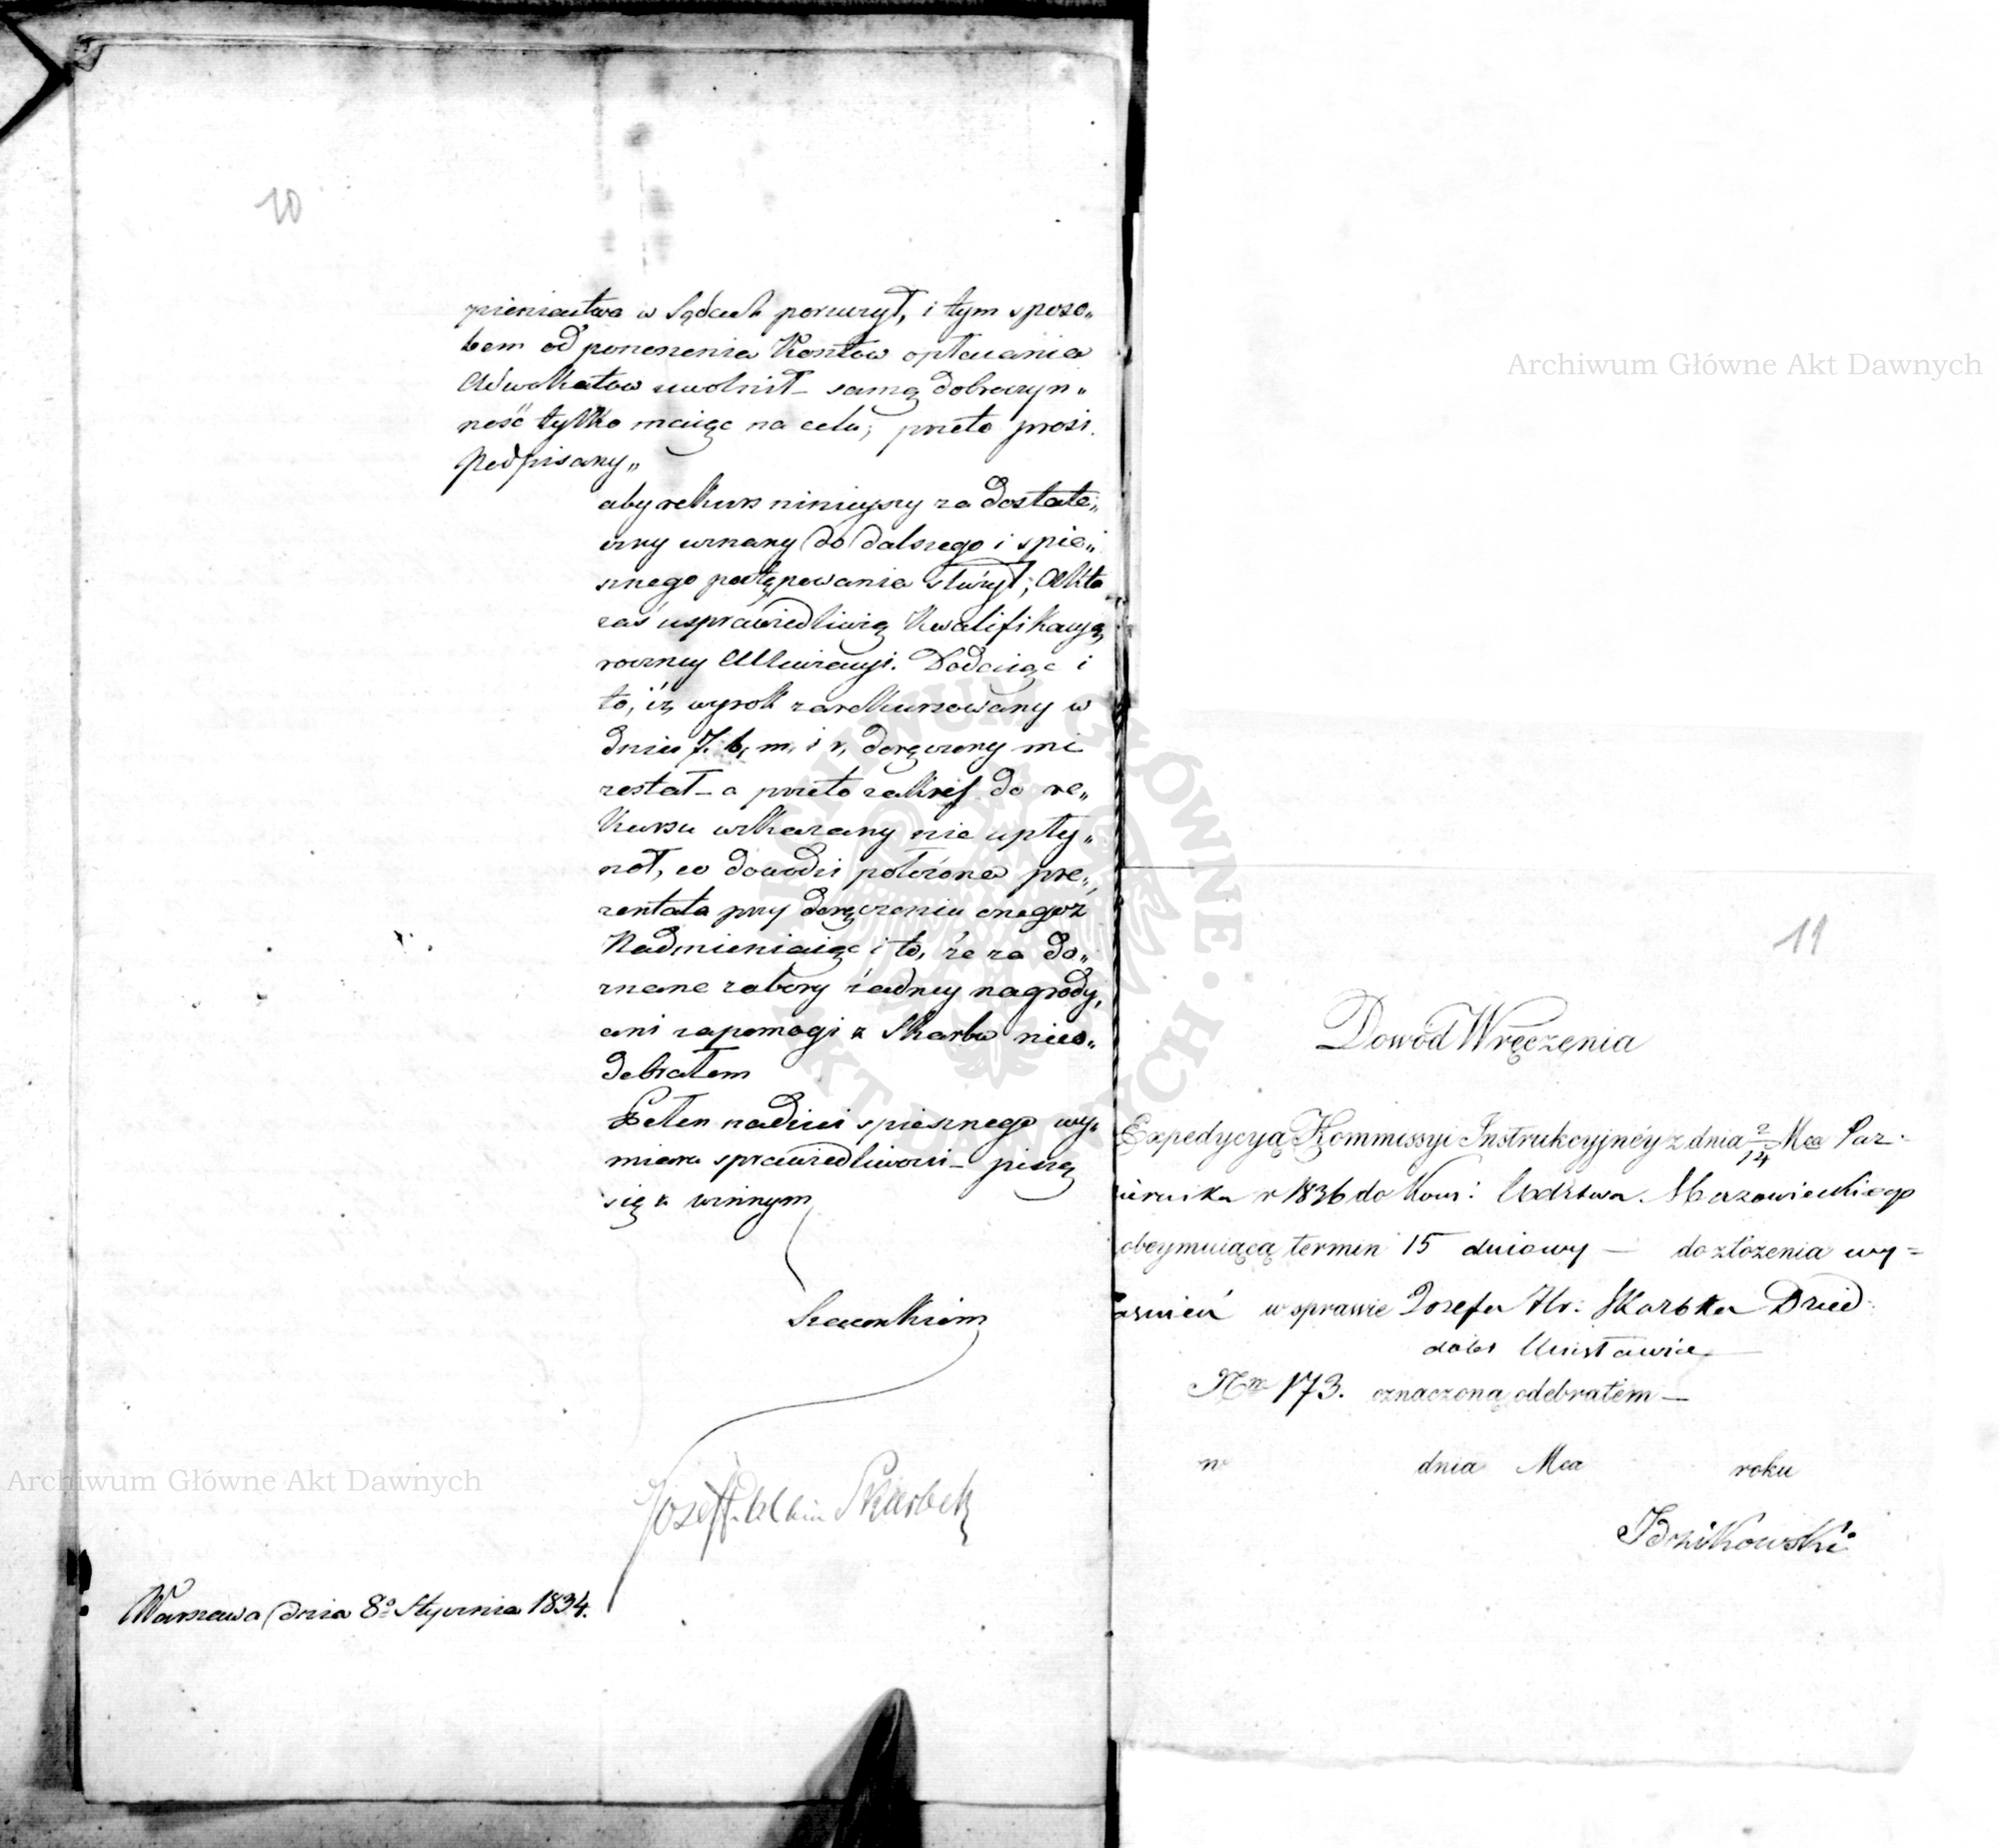 10
pieniactwa w Sądach poruczył, i tym sposo„
bem od ponoszenia Kosztow opłacania
Adwokatow uwolnił – samą dobroczyn„
ność tylko maiąc na celu; przeto prosi
Podpisany„
aby rekurs ninieyszy za dostate„
czny uznany do dalszego i spie„
sznego postępowania służył; Akta
zaś usprawiedliwią Kwalifikacyą
roczney
to, iż wyrok zarekursowany w
dniu 7. b, m, i r, doręczony mi
został – a przeto zakres do re„
kursu wskazany nie upły„
nął, co dowodzi położona pre„
zentata przy doręczeniu onegoż
Nadmieniaiąc i to, że za do„
znane zabory żadney nagrody,
ani zapomogi z Skarbu nieo„
debrałem
Pełen nadziei spiesznego wy„
miaru sprawiedliwości – piszę
się z winnym
Szacunkiem
Jozeff Albin Skarbek
Warszawa dnia 8º Stycznia 1834.
Archiwum Główne Akt Dawnych
Archiwum Główne Akt Dawnych
ARCHIWUM GŁÓWNE · AKT DAWNYCH
11
Dowód Wręczenia
Expedycyą Kommissyi Instrukcyjnéy z dnia 2/14 Mca Paź-
ziernika r 1836 do Kom: Wdztwa Mazowieckiego
obeymuiącą termin 15 dniowy — do złożenia wy=
aśnień w sprawie Jozefa Hr: Skarbka Dzied:
dobr
Nrm 173. oznaczoną odebrałem —
w dnia Mca roku